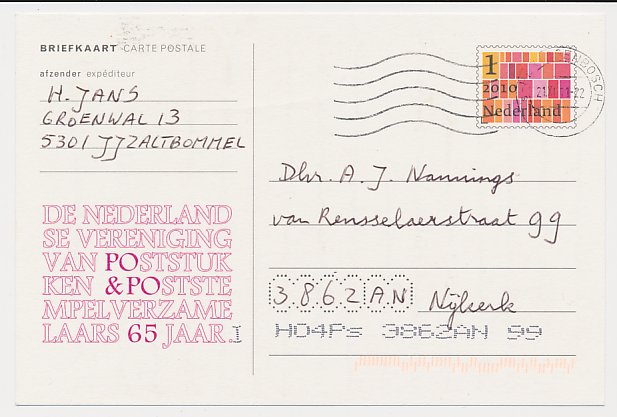 BRIEFKAART CARTE POSTALE
afzender expéditeur
H. JANS
GROENWAL 13
5301 JJ ZALTBOMMEL
DE NEDERLAND
SE VERENIGING
VAN POSTSTUK
KEN & POSTSTE
MPELVERZAME
LAARS 65 JAAR.
1
2010
Nederland
Dhr. A. J. Nannings
van Rensselaerstraat 99
3862AN Nijkerk
HO4Ps 3862AN 99